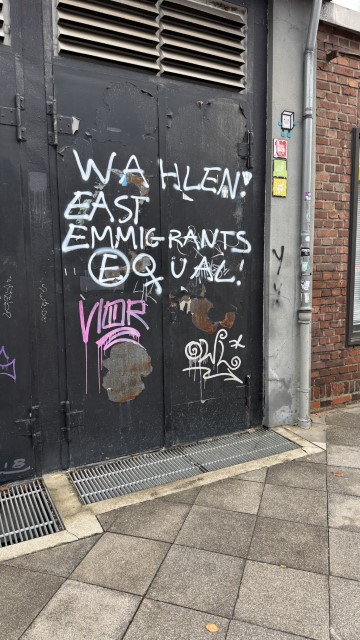 WAHLEN!
EAST
EMMIGRANTS
EQUAL!
VIOR
OWL